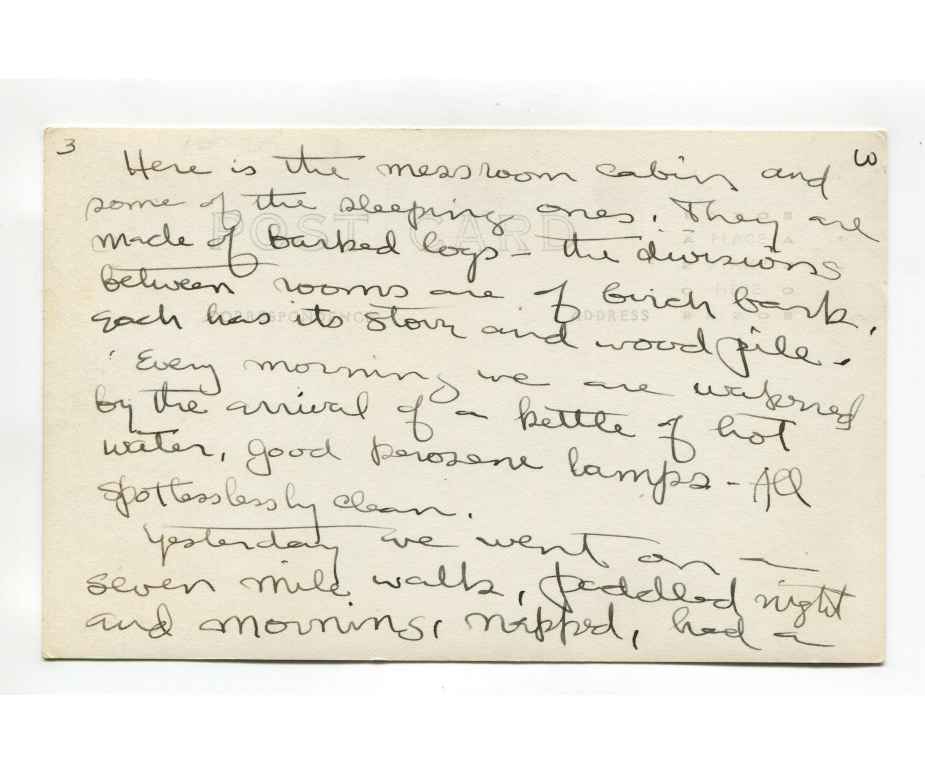 3
W
Here is the messroom cabin and
some of the sleeping ones. They are
POST CARD
PLACE
made of barked logs - the divisions
between rooms are of birch bark.
HERE
CORRESPONDENCE
ADDRESS
each has its stove and wood pile.
Every morning we are wakened
by the arrival of a kettle of hot
water, good kerosene lamps - All
spotlesslessly clean.
Yesterday we went on a
seven mile walk, paddled night
and morning, napped, had a